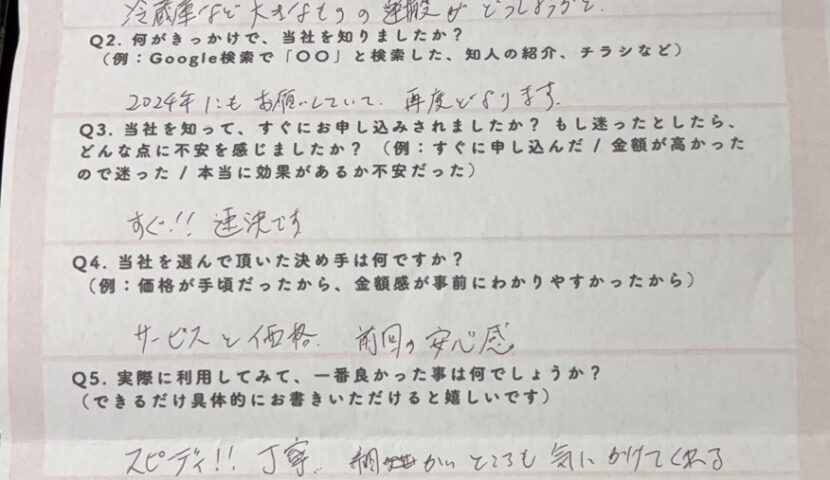 冷蔵庫など大きなものの運搬がどうしようかと、
Q2. 何がきっかけで、当社を知りましたか？
（例：Google検索で「〇〇」と検索した、知人の紹介、チラシなど）
2024年にもお願いしていて、再度となります。
Q3. 当社を知って、すぐにお申し込みされましたか？ もし迷ったとしたら、
どんな点に不安を感じましたか？ （例：すぐに申し込んだ / 金額が高かった
ので迷った / 本当に効果があるか不安だった）
すぐ!! 速決です
Q4. 当社を選んで頂いた決め手は何ですか？
（例：価格が手頃だったから、金額感が事前にわかりやすかったから）
サービスと価格、前回の安心感
Q5. 実際に利用してみて、一番良かった事は何でしょうか？
（できるだけ具体的にお書きいただけると嬉しいです）
スピーディ!! 丁寧、細かいところも気にかけてくれる